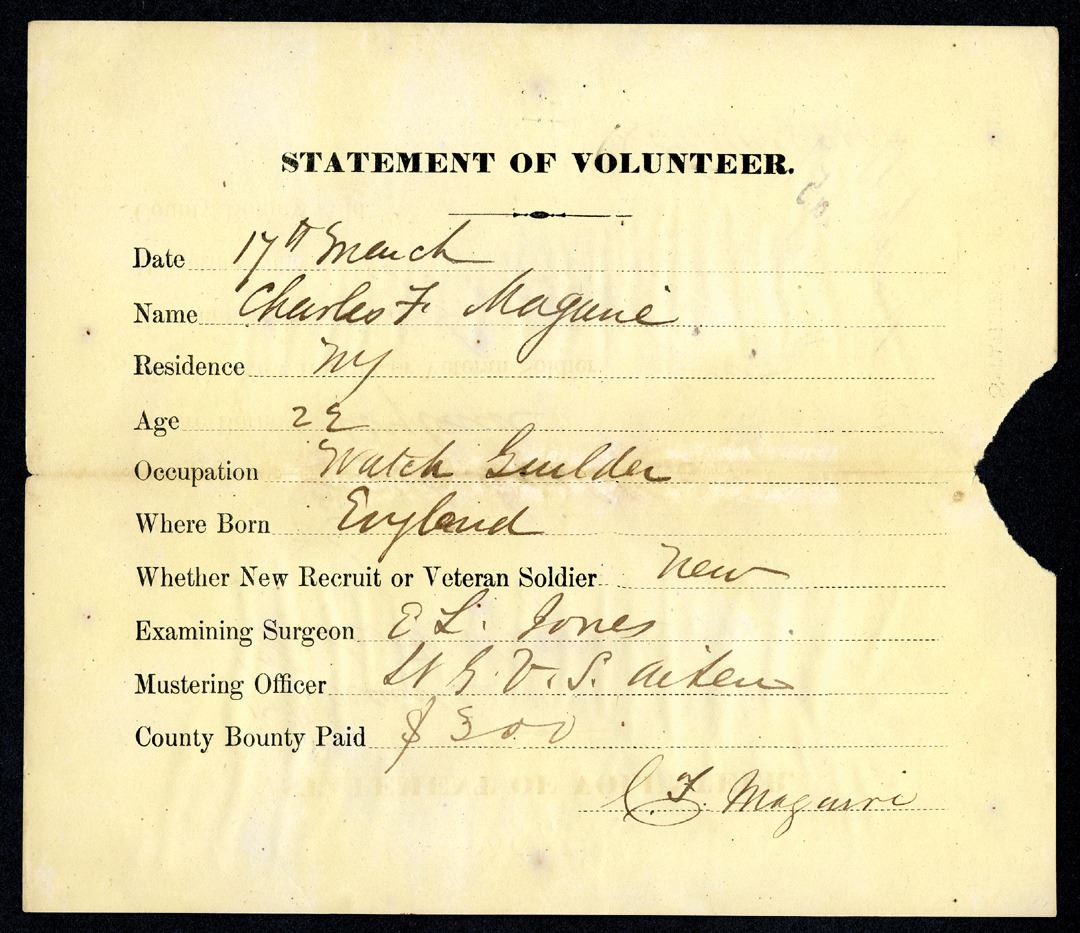 STATEMENT OF VOLUNTEER.
Date 17th March
Name Charles F. Maguire
Residence NY
Age 22
Occupation Watch Guilder
Where Born England
Whether New Recruit or Veteran Soldier New
Examining Surgeon E L. Jones
Mustering Officer Lt G. V. S. Aiken
County Bounty Paid $300
C. F. Maguire